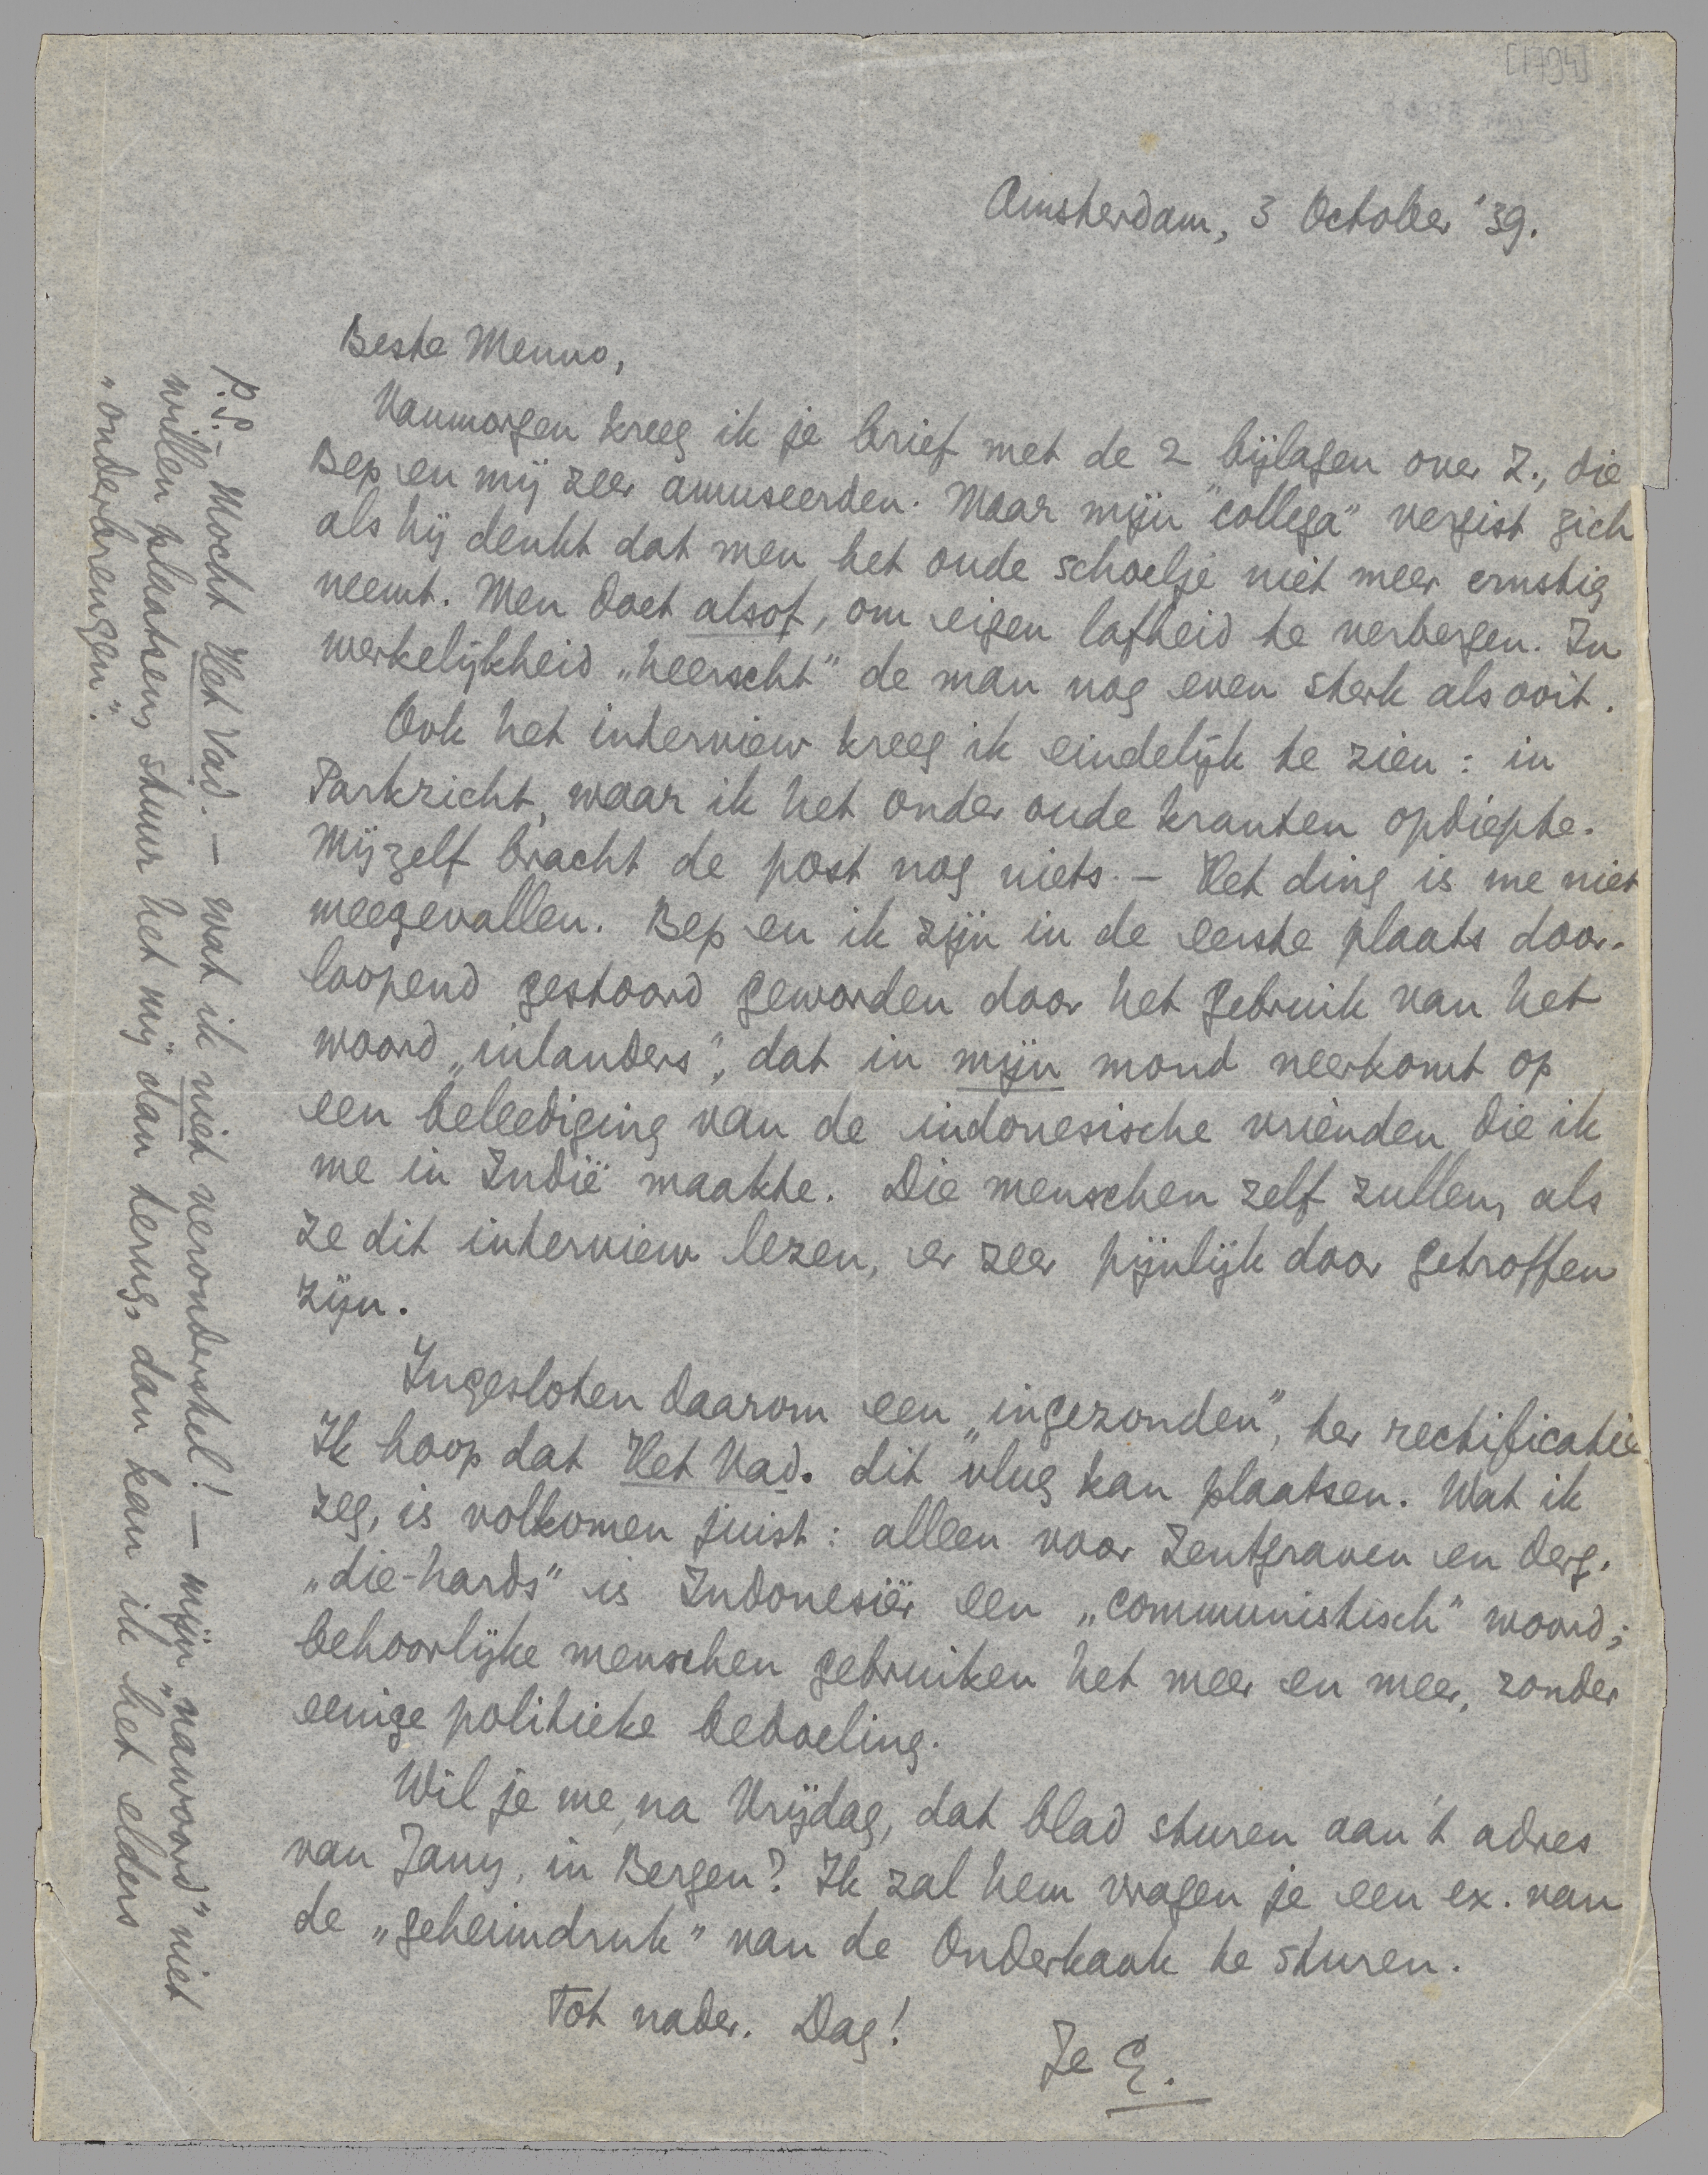 [1794]
Amsterdam, 3 October '39.
Beste Menno,
Vanmorgen kreeg ik je brief met de 2 bijlagen over Z., die
Bep en mij zeer amuseerden. Maar mijn "collega" vergist zich
als hij denkt dat men het oude schoelje niet meer ernstig
neemt. Men doet alsof, om eigen lafheid te verbergen. In
werkelijkheid „heerscht" de man nog even sterk als ooit.
Ook het interview kreeg ik eindelijk te zien: in
Parkzicht, waar ik het onder oude kranten opdiepte.
Mijzelf bracht de post nog niets. – Het ding is me niet
meegevallen. Bep en ik zijn in de eerste plaats door-
loopend gestoord geworden door het gebruik van het
woord „inlanders", dat in mijn mond neerkomt op
een beleediging van de indonesische vrienden die ik
me in Indië maakte. Die menschen zelf zullen, als
ze dit interview lezen, er zeer pijnlijk door getroffen
zijn.
Ingesloten daarom een „ingezonden", ter rectificatie
Ik hoop dat Het Vad. dit vlug kan plaatsen. Wat ik
zeg, is volkomen juist: alleen voor Zentgraven en derg.
„die-hards" is Indonesiër een „communistisch" woord;
behoorlijke menschen gebruiken het meer en meer, zonder
eenige politieke bedoeling.
Wil je me, na Vrijdag, dat blad sturen aan 't adres
van Jany, in Bergen? Ik zal hem vragen je een ex. van
de „geheimdruk" van de Onderkaak te sturen.
Tot nader. Dag!
Je E.
P.S. – Mocht Het Vad. – wat ik niet veronderstel! – mijn „nawoord" niet
willen plaatsen, stuur het mij dan terug, dan kan ik het elders
„onderbrengen".